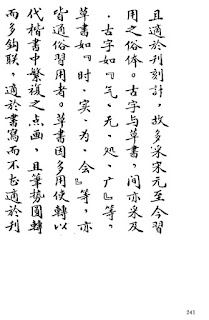 且適於刊刻計，故多采宋元至今習
用之俗体。古字与草書，间亦采及
．古字如『气、无、処、广』等，
草書如『时、实、为、会』等，亦
皆通俗習用者。草書因多用使轉以
代楷書中繁複之点画，且筆势圓轉
而多鈎联，適於書寫而不甚適於刊
241